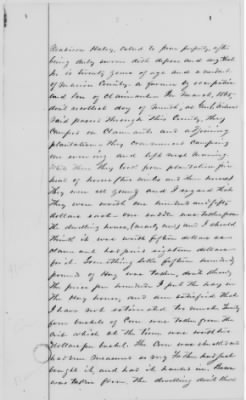 Madison Haley, called to prove property, after
being duly sworn did depose and say that
he is twenty years of age and a resident
of Marion County, a farmer by occupation
and Son of Claimant. In March, 1865
dont recollect day of month, as Genl
said passed through this County, they
Camped on Claimants and adjoining
plantations they commenced Camping
one evening and left next morning
they took from plantation five
head of horses five mules and two horses
They were all young and I regard that
They were worth one hundred and fifty
dollars each one saddle was taken from
the dwelling house, (nearly new) and I should
think it was worth fifteen dollars as
had paid eighteen dollars
for it. Something like fifteen hundred
pounds of Hay was taken, dont
the price per hundred I put the hay in
the Hay house, and am satisfied that
I have not estimated too much. Twenty
four bushels of Corn was taken from the
Crib which at the time was worth two
dollars per bushel. The Corn was shelled and
had been measured as my Father had just
bought it, and had it hauled in.
was taken from the dwelling dont